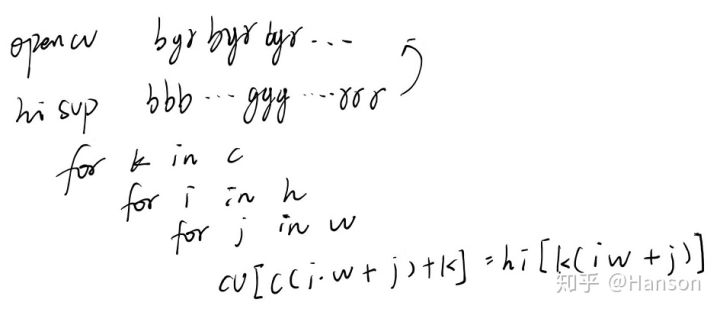 opencv bgr bgr bgr ...
hisup bbb ... ggg ... rrr
for k in c
for i in h
for j in w
cv[c(i·w+j)+k] = hi[k(iw+j)]
知乎 @Hanson